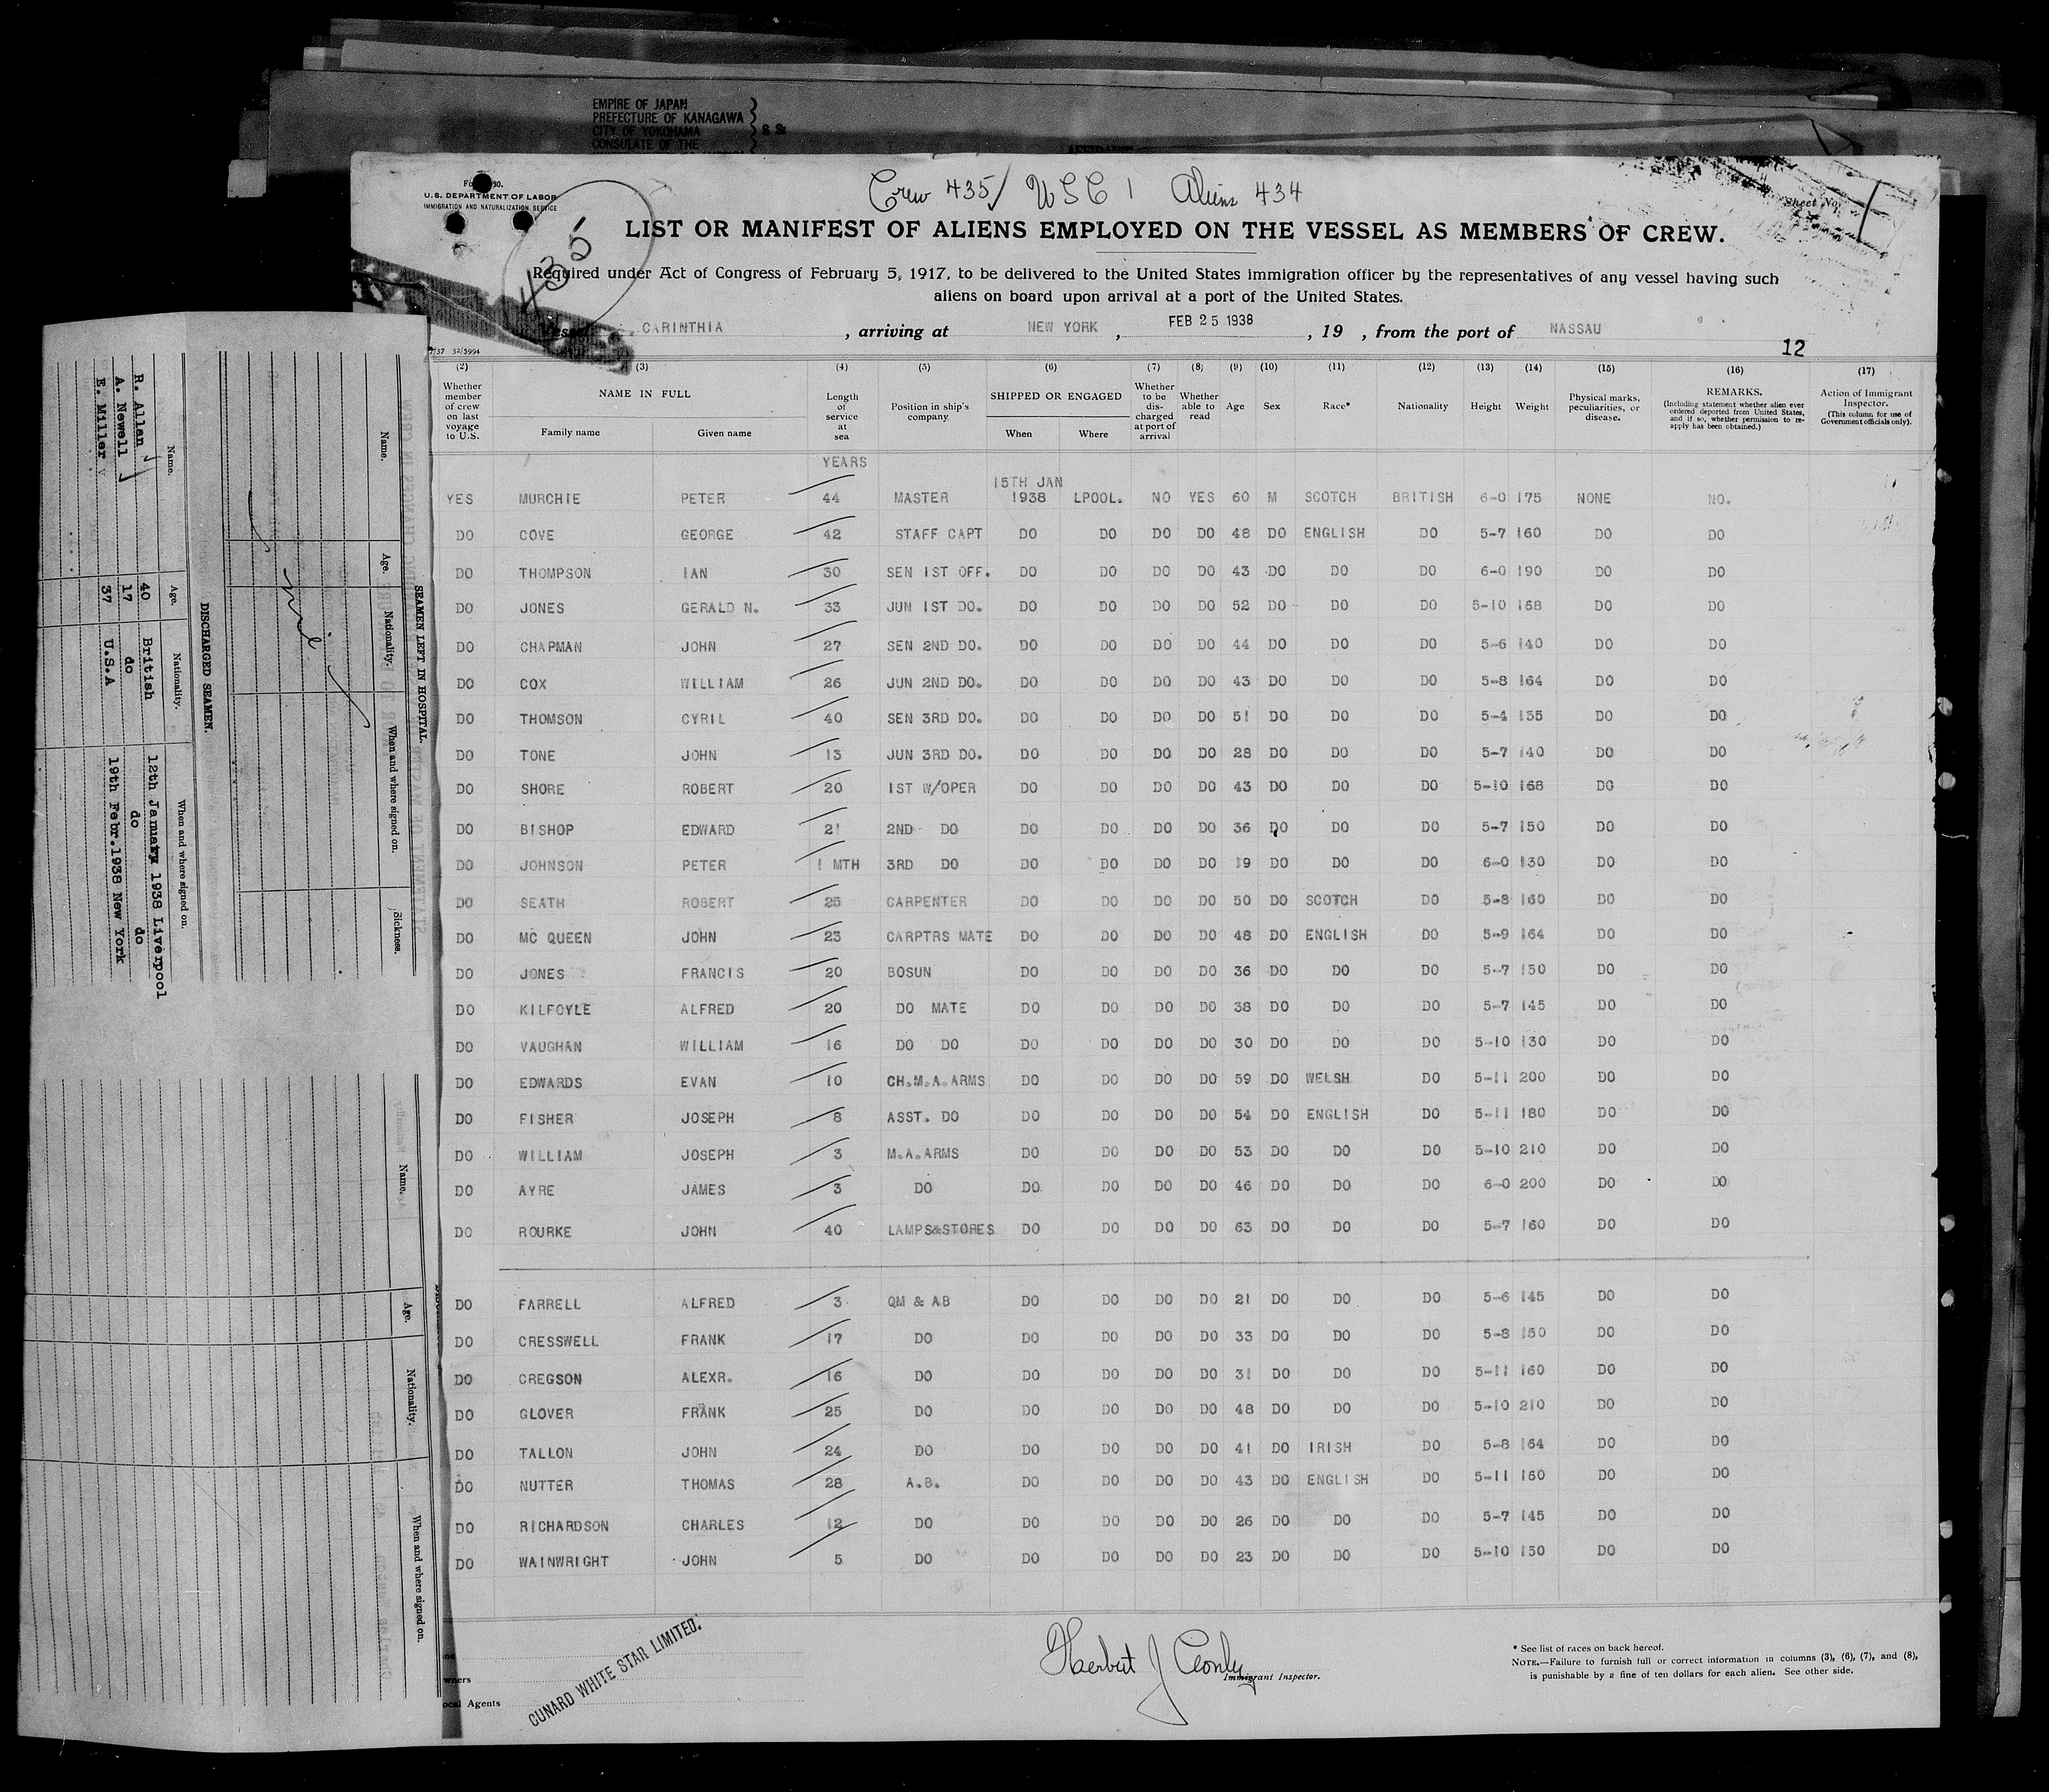 EMPIRE OF JAPAN
PREFECTURE OF KANAGAWA
CITY OF YOKOHAMA
CONSULATE OF THE
S S:
U.S. DEPARTMENT OF LABOR
IMMIGRATION AND NATURALIZATION SERVICE
435
Crew 435/ USC 1 Aliens 434
Sheet No. 1
LIST OR MANIFEST OF ALIENS EMPLOYED ON THE VESSEL AS MEMBERS OF CREW.
Required under Act of Congress of February 5, 1917, to be delivered to the United States immigration officer by the representatives of any vessel having such
aliens on board upon arrival at a port of the United States.
Vessel CARINTHIA, arriving at NEW YORK, FEB 25 1938, 19 , from the port of NASSAU
12
7/37 32/5994
(2) (3) (4) (5) (6) (7) (8) (9) (10) (11) (12) (13) (14) (15) (16) (17)
Whether member of crew on last voyage to U.S.
NAME IN FULL
Family name Given name
Length of service at sea
Position in ship's company
SHIPPED OR ENGAGED
When Where
Whether to be discharged at port of arrival
Whether able to read
Age
Sex
Race*
Nationality
Height
Weight
Physical marks, peculiarities, or disease.
REMARKS.
(Including statement whether alien ever ordered deported from United States, and if so, whether permission to reapply has been obtained.)
Action of Immigrant Inspector.
(This column for use of Government officials only).
YEARS
15TH JAN
YES MURCHIE PETER 44 MASTER 1938 LPOOL. NO YES 60 M SCOTCH BRITISH 6-0 175 NONE NO.
DO COVE GEORGE 42 STAFF CAPT DO DO DO DO 48 DO ENGLISH DO 5-7 160 DO DO
DO THOMPSON IAN 30 SEN 1ST OFF. DO DO DO DO 43 DO DO DO 6-0 190 DO DO
DO JONES GERALD N. 33 JUN 1ST DO. DO DO DO DO 52 DO DO DO 5-10 168 DO DO
DO CHAPMAN JOHN 27 SEN 2ND DO. DO DO DO DO 44 DO DO DO 5-6 140 DO DO
DO COX WILLIAM 26 JUN 2ND DO. DO DO DO DO 43 DO DO DO 5-8 164 DO DO
DO THOMSON CYRIL 40 SEN 3RD DO. DO DO DO DO 51 DO DO DO 5-4 135 DO DO
DO TONE JOHN 13 JUN 3RD DO. DO DO DO DO 28 DO DO DO 5-7 140 DO DO
DO SHORE ROBERT 20 1ST W/OPER DO DO DO DO 43 DO DO DO 5-10 168 DO DO
DO BISHOP EDWARD 21 2ND DO DO DO DO DO 36 DO DO DO 5-7 150 DO DO
DO JOHNSON PETER 1 MTH 3RD DO DO DO DO DO 19 DO DO DO 6-0 130 DO DO
DO SEATH ROBERT 25 CARPENTER DO DO DO DO 50 DO SCOTCH DO 5-8 160 DO DO
DO MC QUEEN JOHN 23 CARPTRS MATE DO DO DO DO 48 DO ENGLISH DO 5-9 164 DO DO
DO JONES FRANCIS 20 BOSUN DO DO DO DO 36 DO DO DO 5-7 150 DO DO
DO KILFOYLE ALFRED 20 DO MATE DO DO DO DO 38 DO DO DO 5-7 145 DO DO
DO VAUGHAN WILLIAM 16 DO DO DO DO DO DO 30 DO DO DO 5-10 130 DO DO
DO EDWARDS EVAN 10 CH.M.A.ARMS DO DO DO DO 59 DO WELSH DO 5-11 200 DO DO
DO FISHER JOSEPH 8 ASST. DO DO DO DO DO 54 DO ENGLISH DO 5-11 180 DO DO
DO WILLIAM JOSEPH 3 M.A.ARMS DO DO DO DO 53 DO DO DO 5-10 210 DO DO
DO AYRE JAMES 3 DO DO DO DO DO 46 DO DO DO 6-0 200 DO DO
DO ROURKE JOHN 40 LAMPS&STORES DO DO DO DO 63 DO DO DO 5-7 160 DO DO
DO FARRELL ALFRED 3 QM & AB DO DO DO DO 21 DO DO DO 5-6 145 DO DO
DO CRESSWELL FRANK 17 DO DO DO DO DO 33 DO DO DO 5-8 150 DO DO
DO CREGSON ALEXR. 16 DO DO DO DO DO 31 DO DO DO 5-11 160 DO DO
DO GLOVER FRANK 25 DO DO DO DO DO 48 DO DO DO 5-10 210 DO DO
DO TALLON JOHN 24 DO DO DO DO DO 41 DO IRISH DO 5-8 164 DO DO
DO NUTTER THOMAS 28 A.B. DO DO DO DO 43 DO ENGLISH DO 5-11 160 DO DO
DO RICHARDSON CHARLES 12 DO DO DO DO DO 26 DO DO DO 5-7 145 DO DO
DO WAINWRIGHT JOHN 5 DO DO DO DO DO 23 DO DO DO 5-10 150 DO DO
CUNARD WHITE STAR LIMITED.
Local Agents
Immigrant Inspector.
* See list of races on back hereof.
NOTE.—Failure to furnish full or correct information in columns (3), (6), (7), and (8),
is punishable by a fine of ten dollars for each alien. See other side.
SEAMEN LEFT IN HOSPITAL.
Name. Age. Nationality. When and where signed on. Sickness.
nil
DISCHARGED SEAMEN.
Name. Age. Nationality. When and where signed on.
R. Allan 40 British 12th January 1938 Liverpool
A. Newell 17 do do do
E. Miller 37 U.S.A 19th Febr.1938 New York
Name. Age. Nationality. When and where signed on.